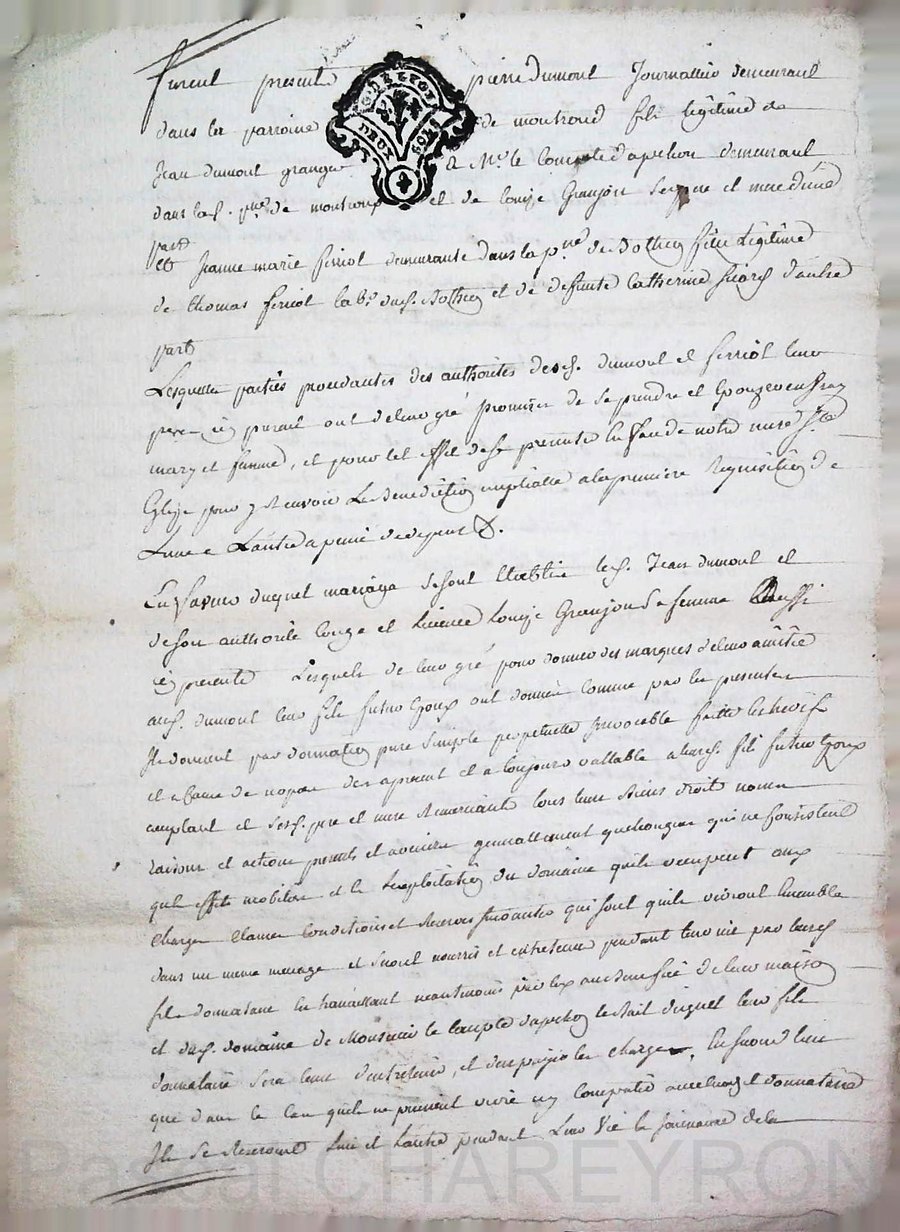 furent presents pierre dumont Journallier demeurant
dans la parroisse de montrond fils légitime de
Jean dumont granger à Mr. le Compte d'apchon demeurant
dans lad. psse de montrond et de Louise Granjon Sa femme et mere d'une
part
et Jeanne marie ferriol demeurante dans la psse de Bothéon fille Légitime
de thomas ferriol lab. dud. Bothéon et de deffunte Catherine d'autre
part
Lesquelles parties procedantes des authorités desd. dumont et ferriol leurs
peres icy presents ont de leur gré promises de se prendre et Epouzer en
mary et femme, et pour cet effet de se presenter en face de notre mere Ste
Eglize pour y recevoir La Benediction nuptialle a la premiere Requisition de
L'une et L'autre a peine de depens &.
En faveur duquel mariage se sont Etablis led. Jean dumont et
de son authorité congé et Licence Louize Granjon Sa femme aussi
icy presente Lesquels de leur gré pour donner des marques de leur amitié
aud. dumont leur fils futur Epoux ont donnés comme par les presentes
Ils donnent par donnation pure simple perpetuelle irrevocable
et a cause de nopces des apresent et a toujours vallable a leurd. fils futur Epoux
acceptant et sesd. pere et mere remerciant tous leurs biens droits noms
raisons et actions presents et avenirs generallement quelconques qui ne consistent
qu'en effets mobiliers et la exploitation du domaine qu'ils occupent aux
charges clauses conditions et reserves suivantes qui sont qu'ils vivront Ensemble
dans un meme menage et seront nourris et entretenus pendant leur vie par leurd.
fils donnataire en travaillant neantmoins par eux au benefice de leur maison
et dud. domaine de Monsieur le Compte d'apchon le bail duquel leur fils
donnataire sera tenu d'entretenir, et d'en payer les charges, En second lieu
que dans le cas qu'ils ne pussent vivre en compatir avec leurd. fils donnataire
Ils se reservent L'un et L'autre pendant Leur Vie la jouissance de la
DEUX SOLS
Pascal CHAREYRON